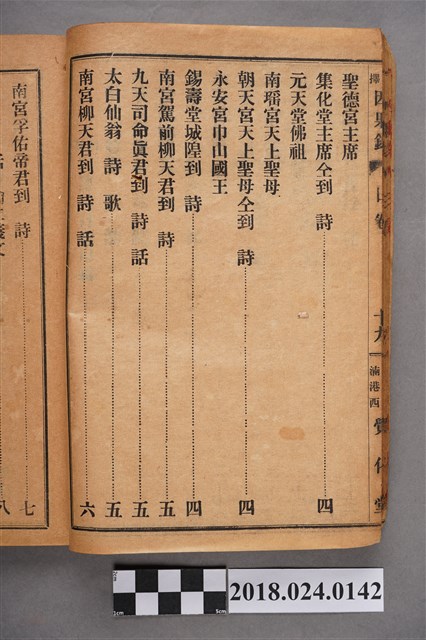 聖德宮主席
集化堂主席仝到 詩 四
元天堂佛祖
南瑤宮天上聖母
朝天宮天上聖母仝到 詩 四
永安宮巾山國王
錫壽堂城隍到 詩 四
南宮駕前柳天君到 詩 五
九天司命眞君到 詩 話 五
太白仙翁 詩 歌 五
南宮柳天君到 詩 話 六
南宮孚佑帝君到 詩 七
八
滴港西
堂
2cm
1cm
5cm
2018.024.0142